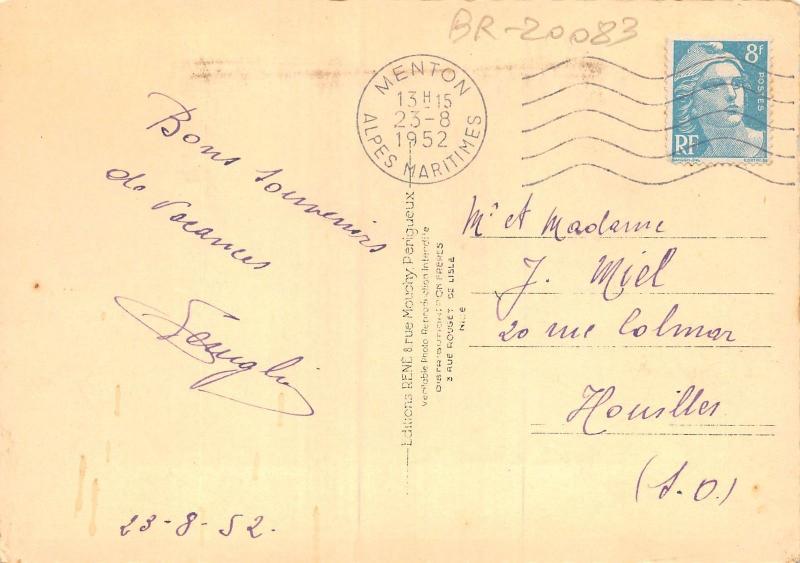 BR-20083
MENTON
13H15
23-8
1952
ALPES MARITIMES
8f
POSTES
RF
Bons souvenirs
de vacances
23-8-52.
Editions RENÉ 8, rue Mouchy, Périgueux
Véritable Photo Reproduction Interdite
DISTRIBUTION: DON FRÈRES
3 RUE ROUGET DE LISLE
NICE
Mr et Madame
J. Miel
20 rue Colmar
Houilles
(S.O.)